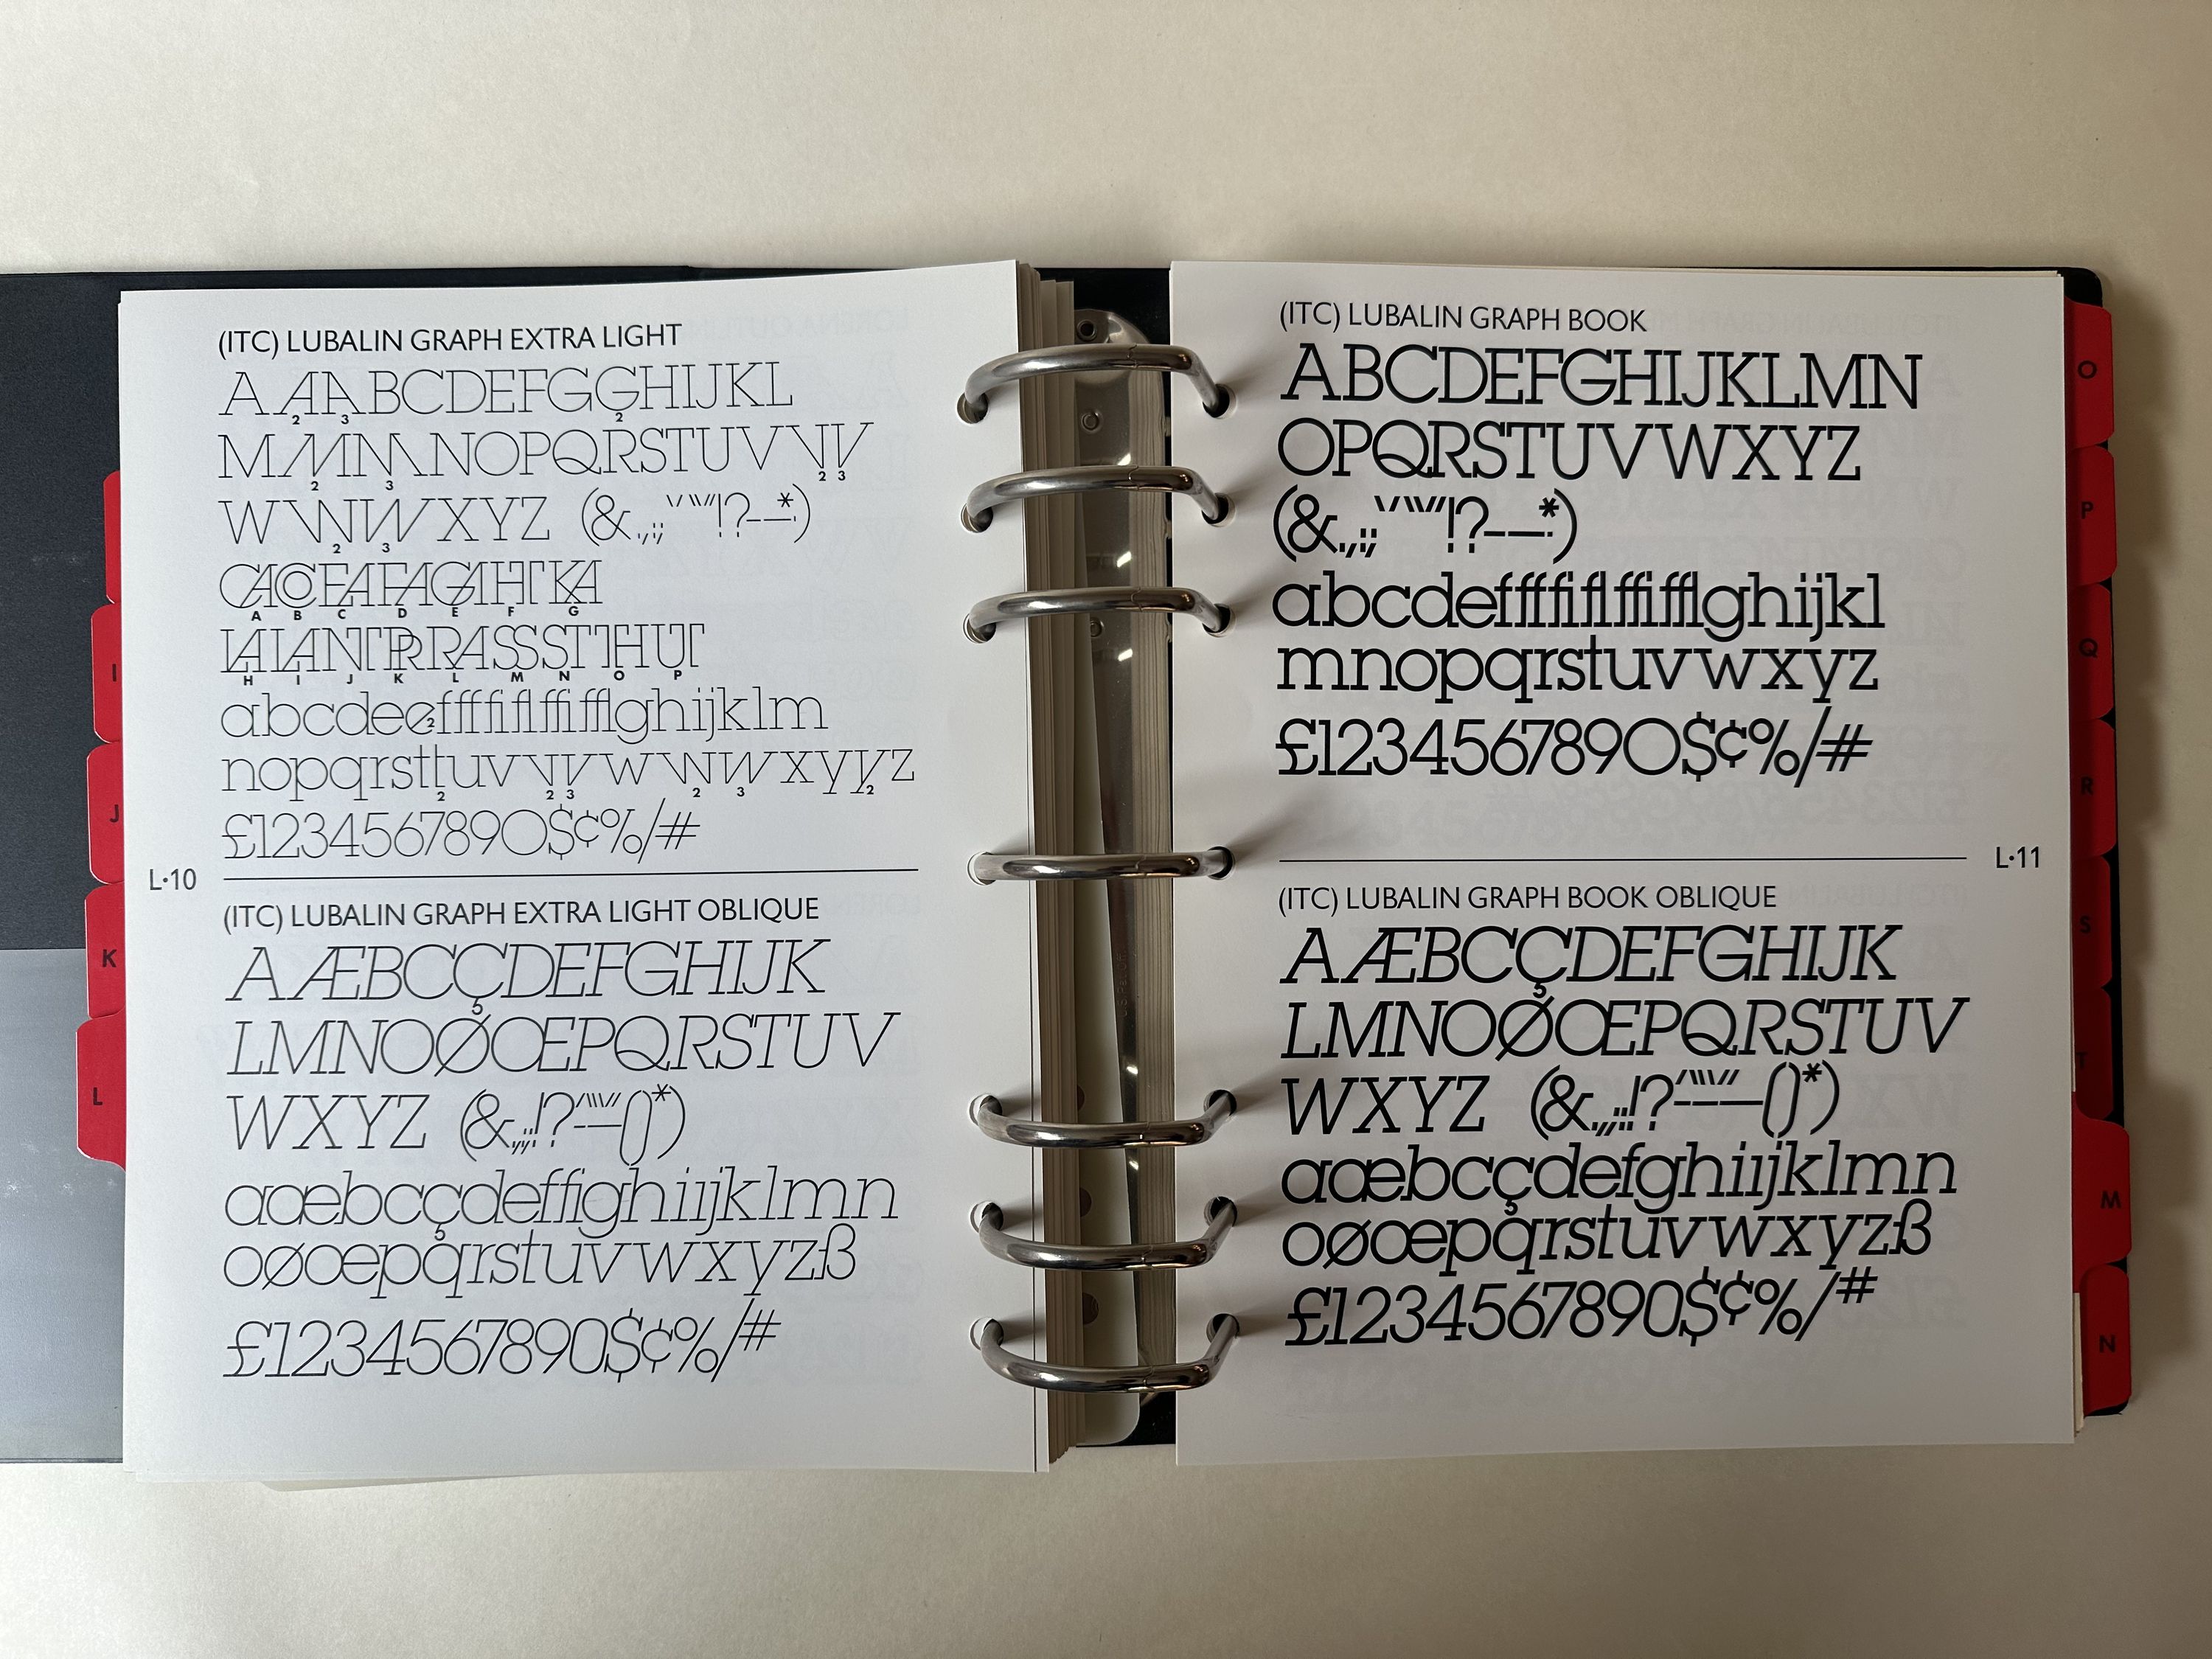 (ITC) LUBALIN GRAPH EXTRA LIGHT
A A A BCDEFGGHIJKL
2 3 2
M M M NOPQRSTUV V V
2 3 2 3
W W W XYZ (&.,:;‘’“”!?-–—·*)
2 3
CA CO EA FA GA HT KA
A B C D E F G
LA LA NT RR RA SS ST TH UT
H I J K L M N O P
abcdeefffffiflffifflghijklm
2
nopqrsttuvvvwwwxyyz
2 2 3 2 3 2
£1234567890$¢%/#
L·10
(ITC) LUBALIN GRAPH EXTRA LIGHT OBLIQUE
AÆBCÇDEFGHIJK
LMNOØŒPQRSTUV
WXYZ (&.,:;!?‘’“”-–—()*)
aæbcçdeffighiıjklmn
oøœpqrstuvwxyzß
£1234567890$¢%/#
(ITC) LUBALIN GRAPH BOOK
ABCDEFGHIJKLMN
OPQRSTUVWXYZ
(&.,:;‘’“”!?-–—·*)
abcdefffffiflffifflghijkl
mnopqrstuvwxyz
£1234567890$¢%/#
L·11
(ITC) LUBALIN GRAPH BOOK OBLIQUE
AÆBCÇDEFGHIJK
LMNOØŒPQRSTUV
WXYZ (&.,:;!?‘’“”-–—()*)
aæbcçdefghiıjklmn
oøœpqrstuvwxyzß
£1234567890$¢%/#
I
J
K
L
O
P
Q
R
S
T
M
N